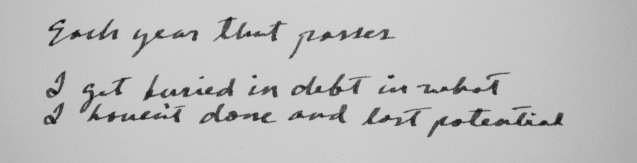 Each year that passes
I get buried in debt in what
I haven't done and lost potential